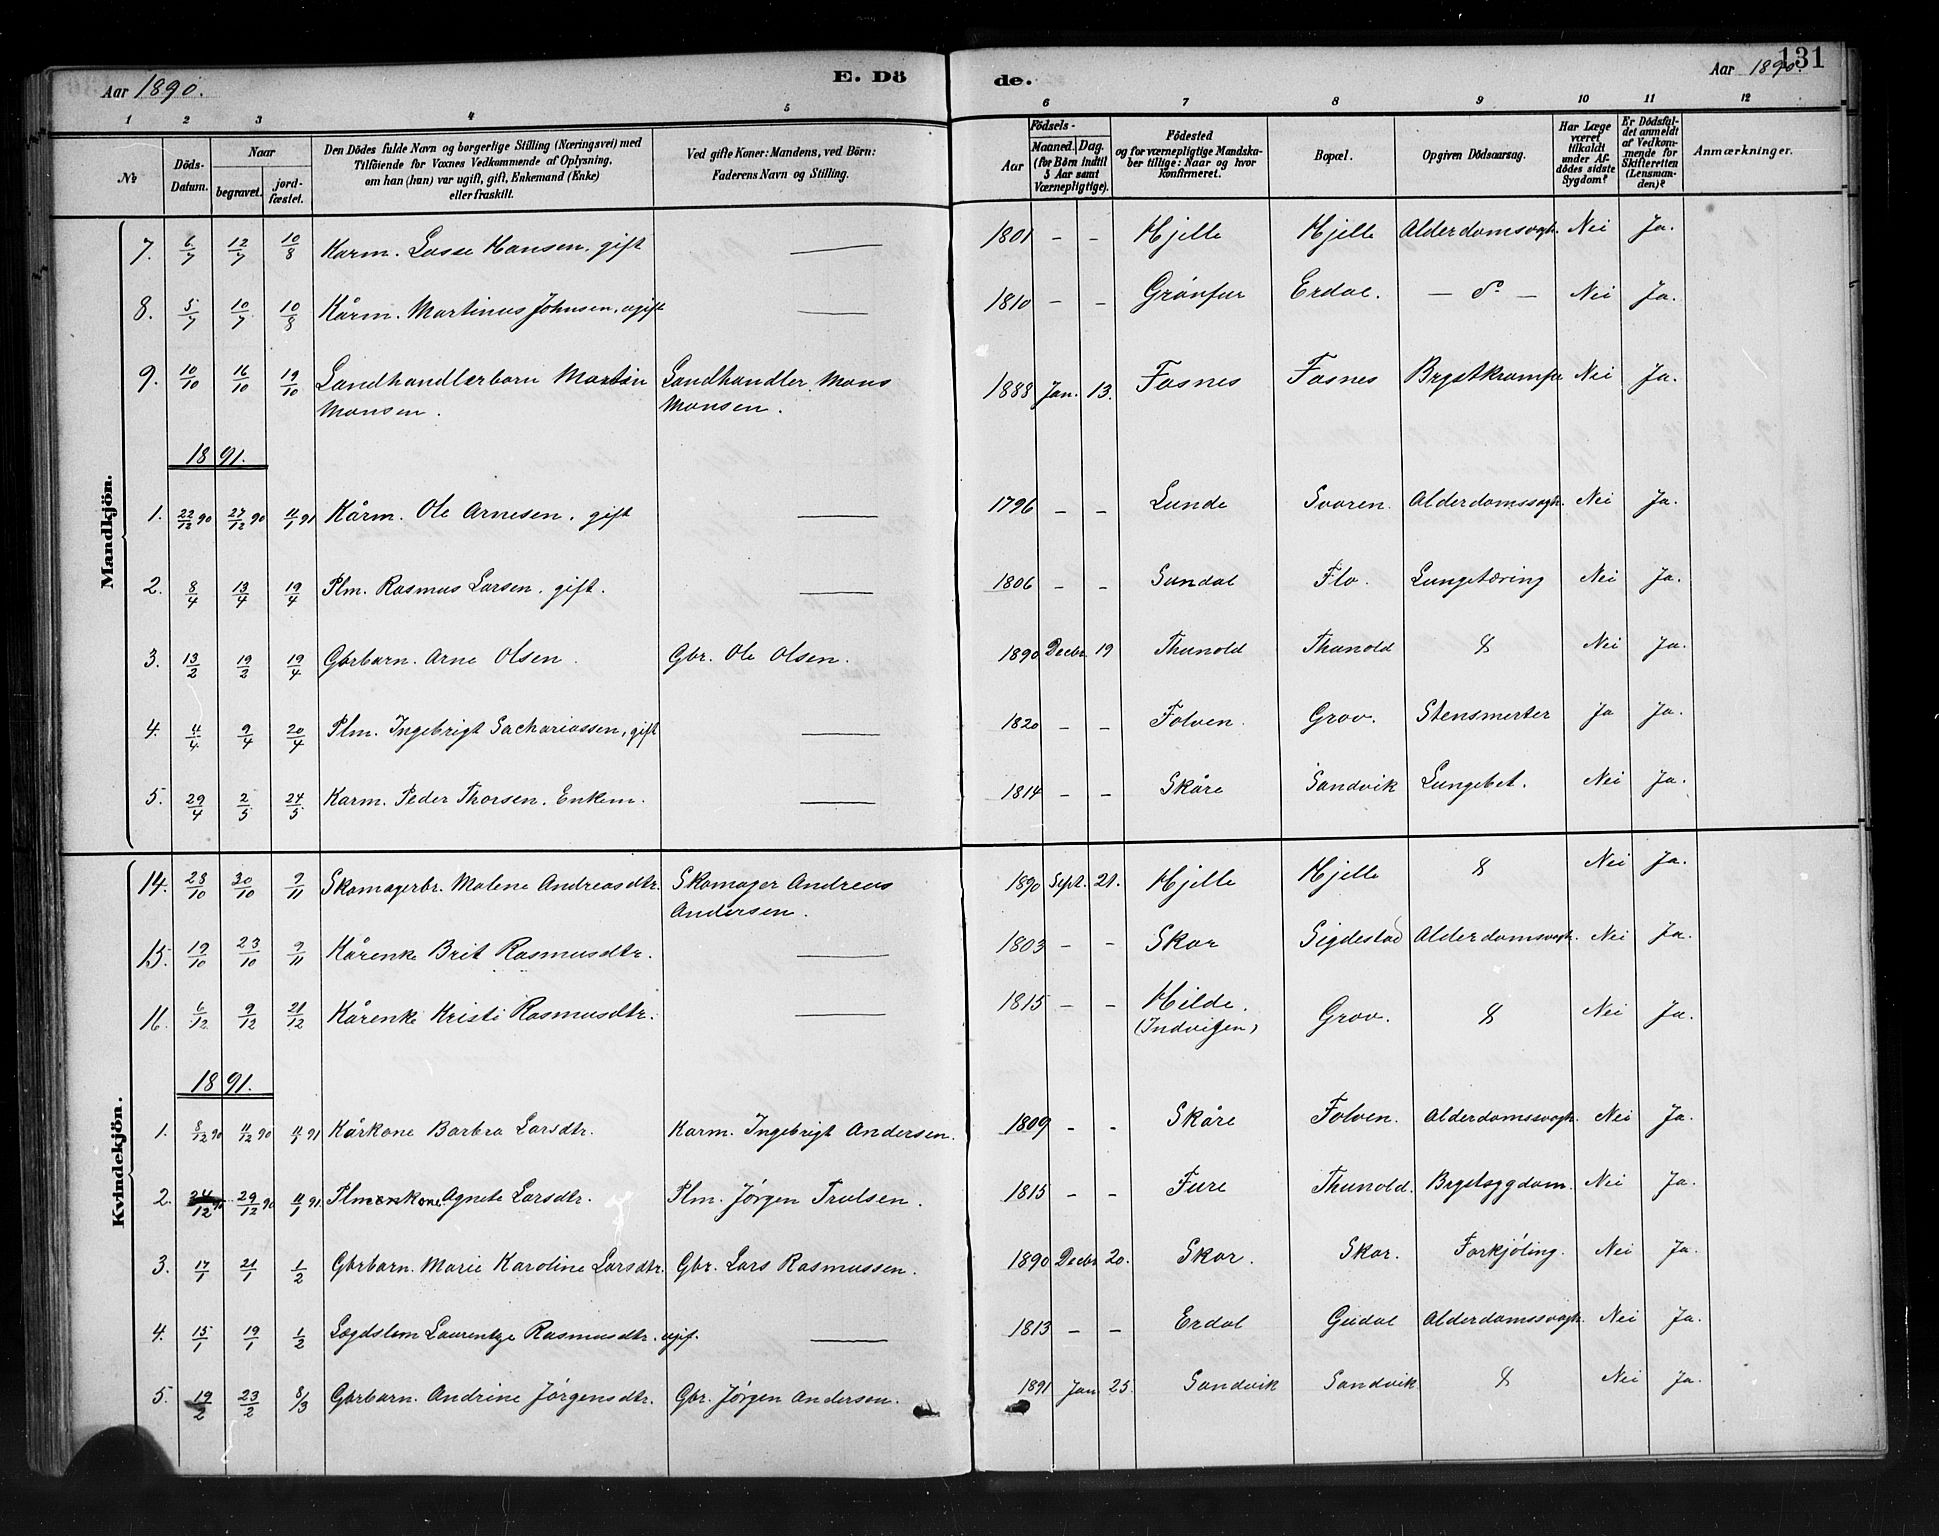 Aar 1890. E. Dö de. Aar 1890. 131
1 2 3 4 5 6 7 8 9 10 11 12
№ Döds-Datum. Naar begravet. jord-fæstet. Den Dödes fulde Navn og borgerlige Stilling (Næringsvei) med Tilföiende for Voxnes Vedkommende af Oplysning, om han (hun) var ugift, gift, Enkemand (Enke) eller fraskilt. Ved gifte Koner: Mandens, ved Börn: Faderens Navn og Stilling. Födsels- Aar Maaned. Dag. (for Börn indtil 5 Aar samt Værnepligtige). Födested og for værnepligtige Mandskaber tillige: Naar og hvor Konfirmeret. Bopæl. Opgiven Dödsaarsag. Har Læge været tilkaldt under Afdödes sidste Sygdom? Er Dödsfaldet anmeldt af Vedkommende for Skifteretten (Lensmanden)? Anmærkninger.
Mandkjön.
7. 6/7 12/7 10/8 Karm. Lasse Hansen, gift — 1801 - - Hjelle Hjelle Alderdomsvagh. Nei Ja.
8. 5/7 10/7 10/8 Kårm. Martinus Johnsen, ugift — 1810 - - Grönfur Erdal. — do — Nei Ja.
9. 10/10 16/10 19/10 Landhandlerbarn Martin Landhandler Mons 1888 Jan. 13. Fosnes Fosnes Brystkrampe Nei Ja.
Monsen. Monsen.
1891.
1. 22/12 90 27/12 90 11/1 91 Kårm. Ole Arnesen, gift — 1796 - - Lunde Svoren. Alderdomssvagh. Nei Ja.
2. 8/4 13/4 19/4 Plm. Rasmus Larsen, gift. — 1806 - - Sundal Flo. Lungetæring Nei Ja.
3. 13/2 19/2 19/4 Gbrbarn. Arne Olsen. Gbr. Ole Olsen. 1890 Decbr. 19 Thunold Thunold Nei Ja.
4. 4/4 9/4 20/4 Plm. Ingebrigt Sachariassen, gift — 1820 - - Folven. Grov. Stensmerter Ja Ja.
5. 29/4 2/5 24/5 Karm. Peder Thorsen. Enkem. — 1814 - - Skåre Sandvik Lungebet. Nei Ja.
Kvindekjön.
14. 23/10 30/10 9/11 Skomagerbr. Malene Andreasdtr. Skomager Andreas 1890 Sept. 21. Hjelle Hjelle Nei Ja.
Andersen.
15. 19/10 23/10 9/11 Kårenke Brit Rasmusdtr. — 1803 - - Skar Sigdestad Alderdomsvagh. Nei Ja.
16. 6/12 9/12 21/12 Kårenke Kristi Rasmusdtr. — 1815 - - Hilde. Grov. Nei Ja.
(Indvigen)
1891.
1. 8/12 90 11/12 90 11/1 91 Kårkone Barbra Larsdtr. Karm. Ingebrigt Andersen. 1809 - - Skåre Folven. Alderdomssvagh. Nei Ja.
2. 24/12 90 29/12 90 11/1 91 Plmankone Agnete Larsdtr. Plm. Jörgen Trulsen. 1815 - - Fure Thunold. Brystsygdom. Nei Ja.
3. 17/1 21/1 1/2 Gbrbarn. Marie Karoline Larsdtr. Gbr. Lars Rasmussen. 1890 Decbr 20. Skar. Skar. Forkjöling. Nei Ja.
4. 15/1 19/1 1/2 Lægdslem Laurentze Rasmusdtr. ugif. — 1813 - - Erdal Guddal Alderdomssvagh. Nei Ja.
5. 19/2 23/2 8/3 Gbrbarn. Andrine Jörgensdtr. Gbr. Jörgen Andersen. 1891 Jan 25. Sandvik Sandvik Nei Ja.